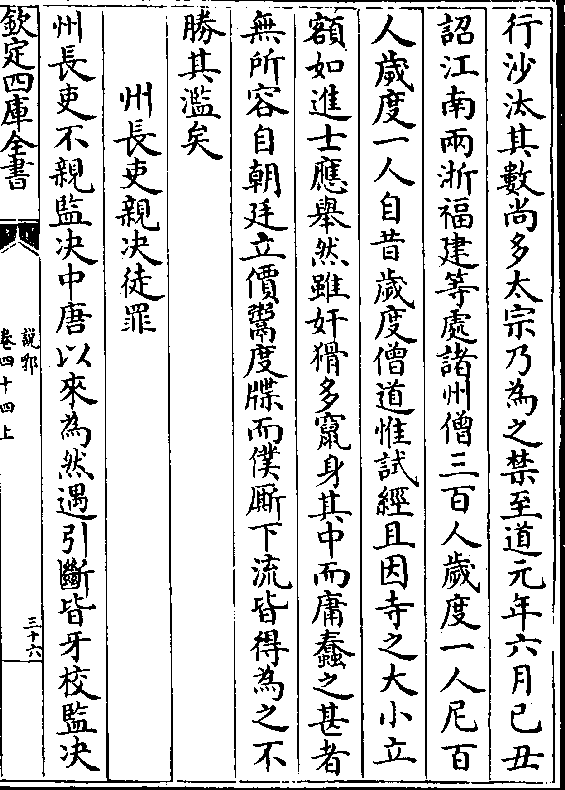 行沙汰其數尚多太宗乃為之禁至道元年六月己丑
詔江南兩浙福建等處諸州僧三百人歲度一人尼百
人歲度一人自昔歲度僧道惟試經且因寺之大小立
額如進士應舉然雖奸猾多竄身其中而庸蠢之甚者
無所容自朝廷立價鬻度牒而僕厮下流皆得為之不
勝其濫矣
州長吏親决徒罪
州長吏不親監决中唐以來為然遇引斷皆牙校監决
欽定四庫全書
說郛
卷四十四上
三十六